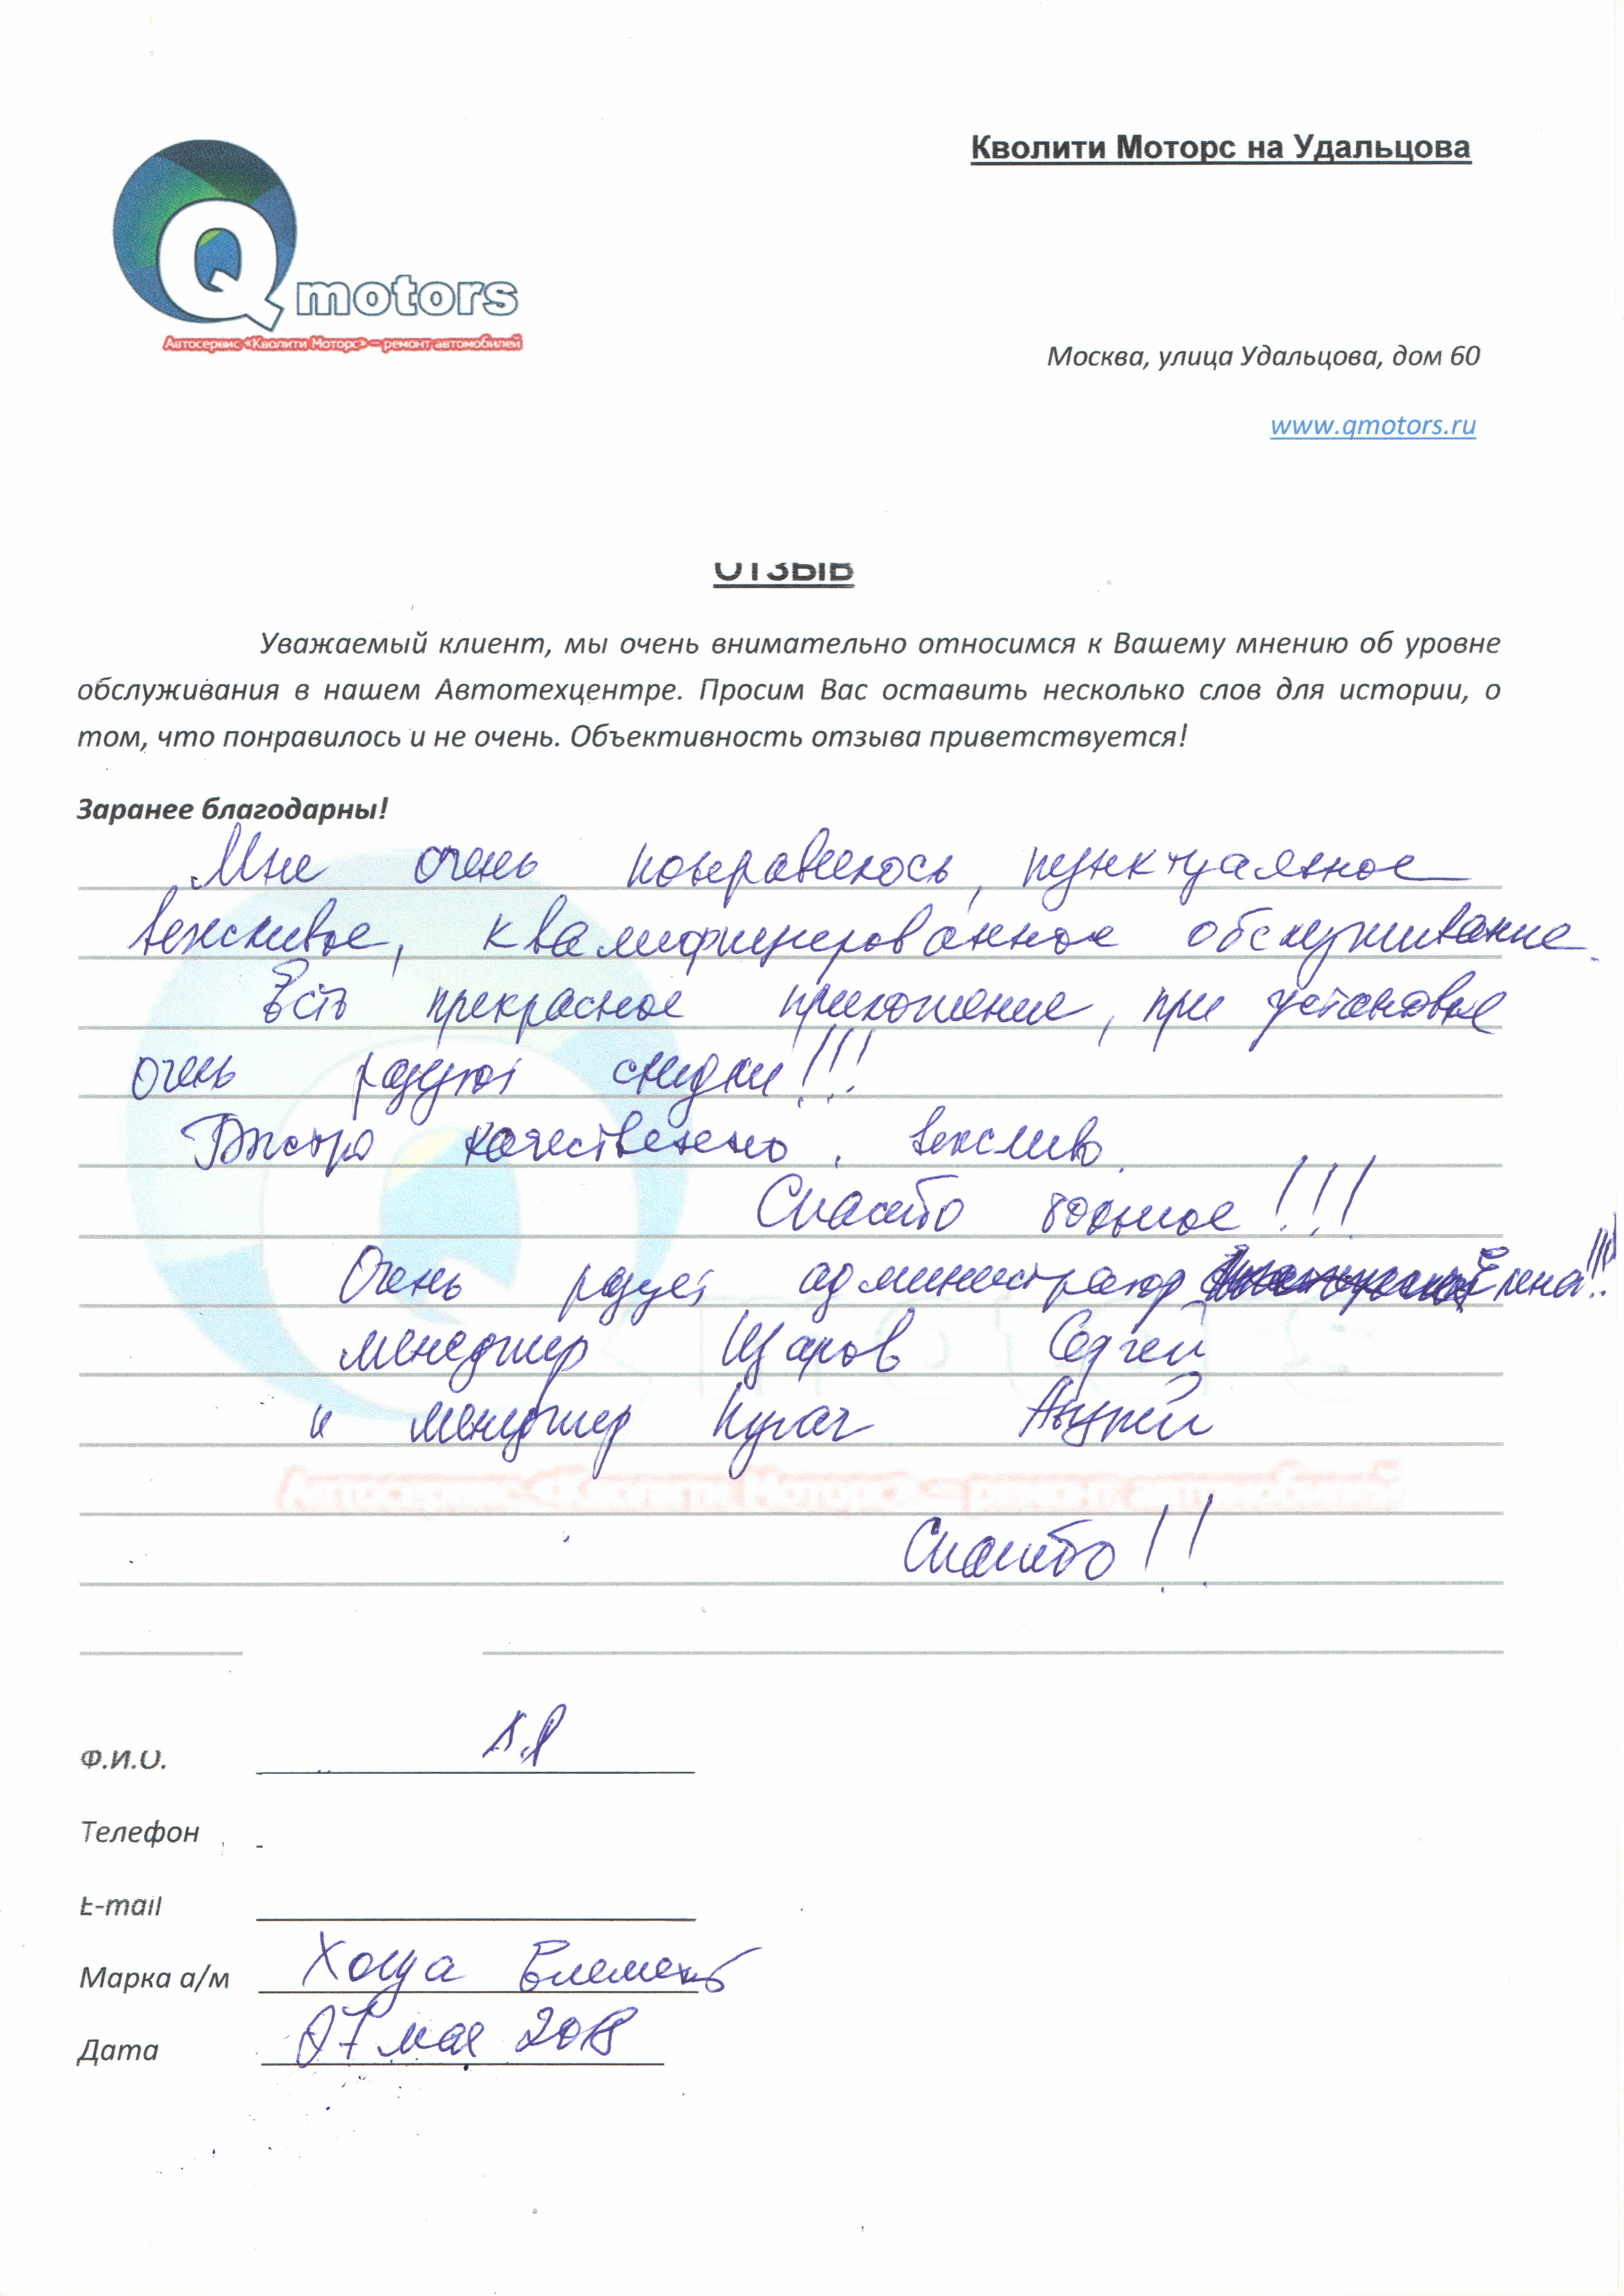 Кволити Моторс на Удальцова
Q motors
Автосервис «Кволити Моторс» – ремонт автомобилей
Москва, улица Удальцова, дом 60
www.qmotors.ru
ОТЗЫВ
Уважаемый клиент, мы очень внимательно относимся к Вашему мнению об уровне
обслуживания в нашем Автотехцентре. Просим Вас оставить несколько слов для истории, о
том, что понравилось и не очень. Объективность отзыва приветствуется!
Заранее благодарны!
Мне очень понравилось, пунктуальное
вежливое, квалифицированное обслуживание.
Есть прекрасное приложение, при установке
очень радуют скидки!!!
Быстро качественно, вежливо.
Спасибо большое!!!
Очень радует администратор Елена!!!
менеджер Щаров Сергей
и менеджер Пугач Андрей
Автосервис «Кволити Моторс» – ремонт автомобилей
Спасибо!!
Ф.И.О.
Телефон
E-mail
Марка а/м Хонда Елемент
Дата 07 мая 2018